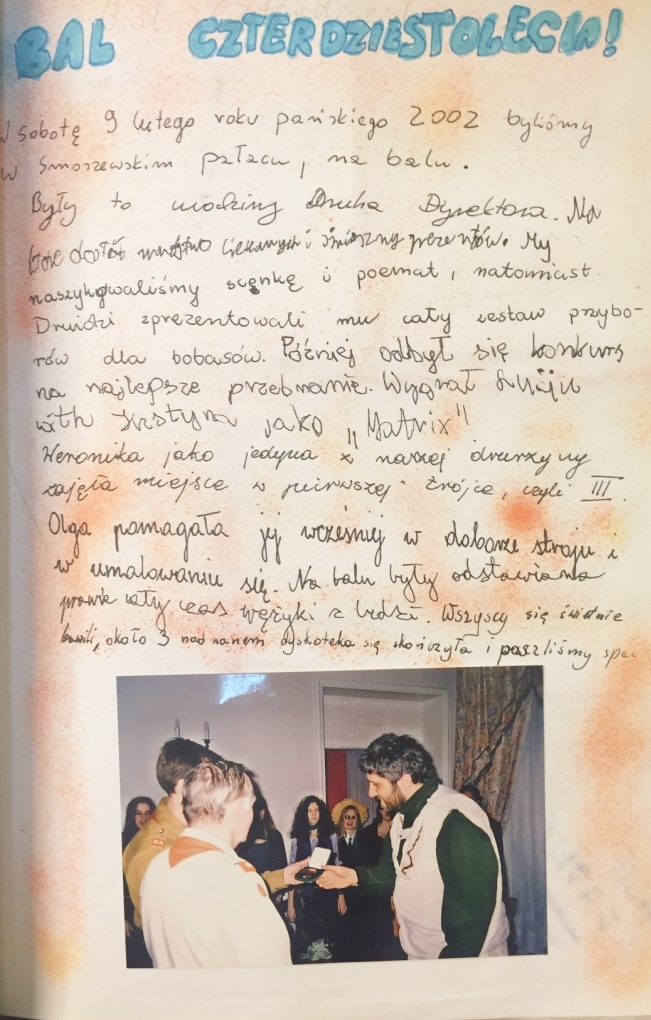 BAL CZTERDZIESTOLECIA!
W sobotę 9 lutego roku pańskiego 2002 byliśmy
w Smoszewskim pałacu, na balu.
Były to urodziny Druha Dyrektora. Na
dostał mnóstwo ciekawych i śmiesznych prezentów. My
naszykowaliśmy scenkę i poemat, natomiast
Druidzi zprezentowali mu cały zestaw przybo-
rów dla bobasów. Później odbył się konkurs
na najlepsze przebranie. Wygrał
with Justyna jako "Matrix"
Weronika jako jedyna z naszej drużyny
zajęła miejsce w pierwszej trójce, czyli III.
Olga pomagała jej wcześniej w doborze stroju i
w umalowaniu się. Na balu były odstawiane
prawie cały czas wężyki z ludzi. Wszyscy się świetnie
bawili, około 3 nad ranem dyskoteka się skończyła i poszliśmy spać